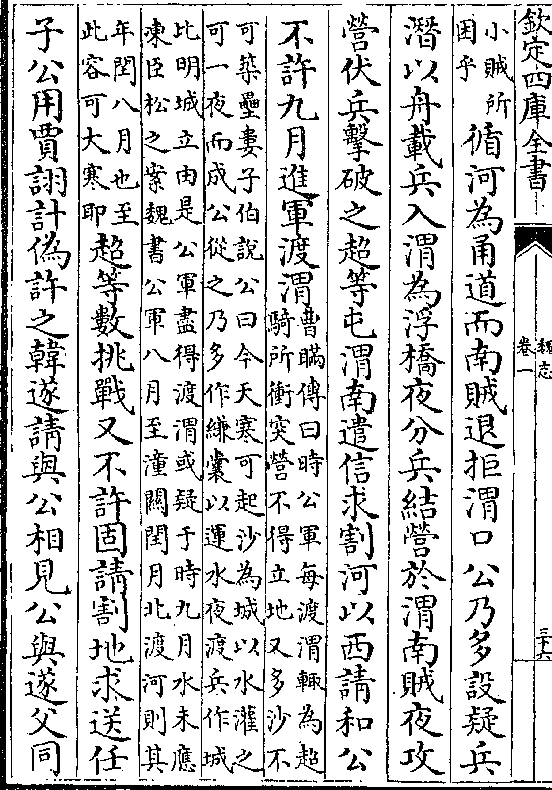 欽定四庫全書
魏志
卷一
三十六
小賊所
困乎
循河為甬道而南賊退拒渭口公乃多設疑兵
潛以舟載兵入渭為浮橋夜分兵結營於渭南賊夜攻
營伏兵擊破之超等屯渭南遣信求割河以西請和公
不許九月進軍渡渭
曹瞞傳曰時公軍每渡渭輒為超
騎所衝突營不得立地又多沙不
可築壘婁子伯說公曰今天寒可起沙為城以水灌之
可一夜而成公從之乃多作縑囊以運水夜渡兵作城
比明城立由是公軍盡得渡渭或疑于時九月水未應
凍臣松之案魏書公軍八月至潼關閏月北渡河則其
年閏八月也至
此容可大寒耶
超等數挑戰又不許固請割地求送任
子公用賈詡計偽許之韓遂請與公相見公與遂父同